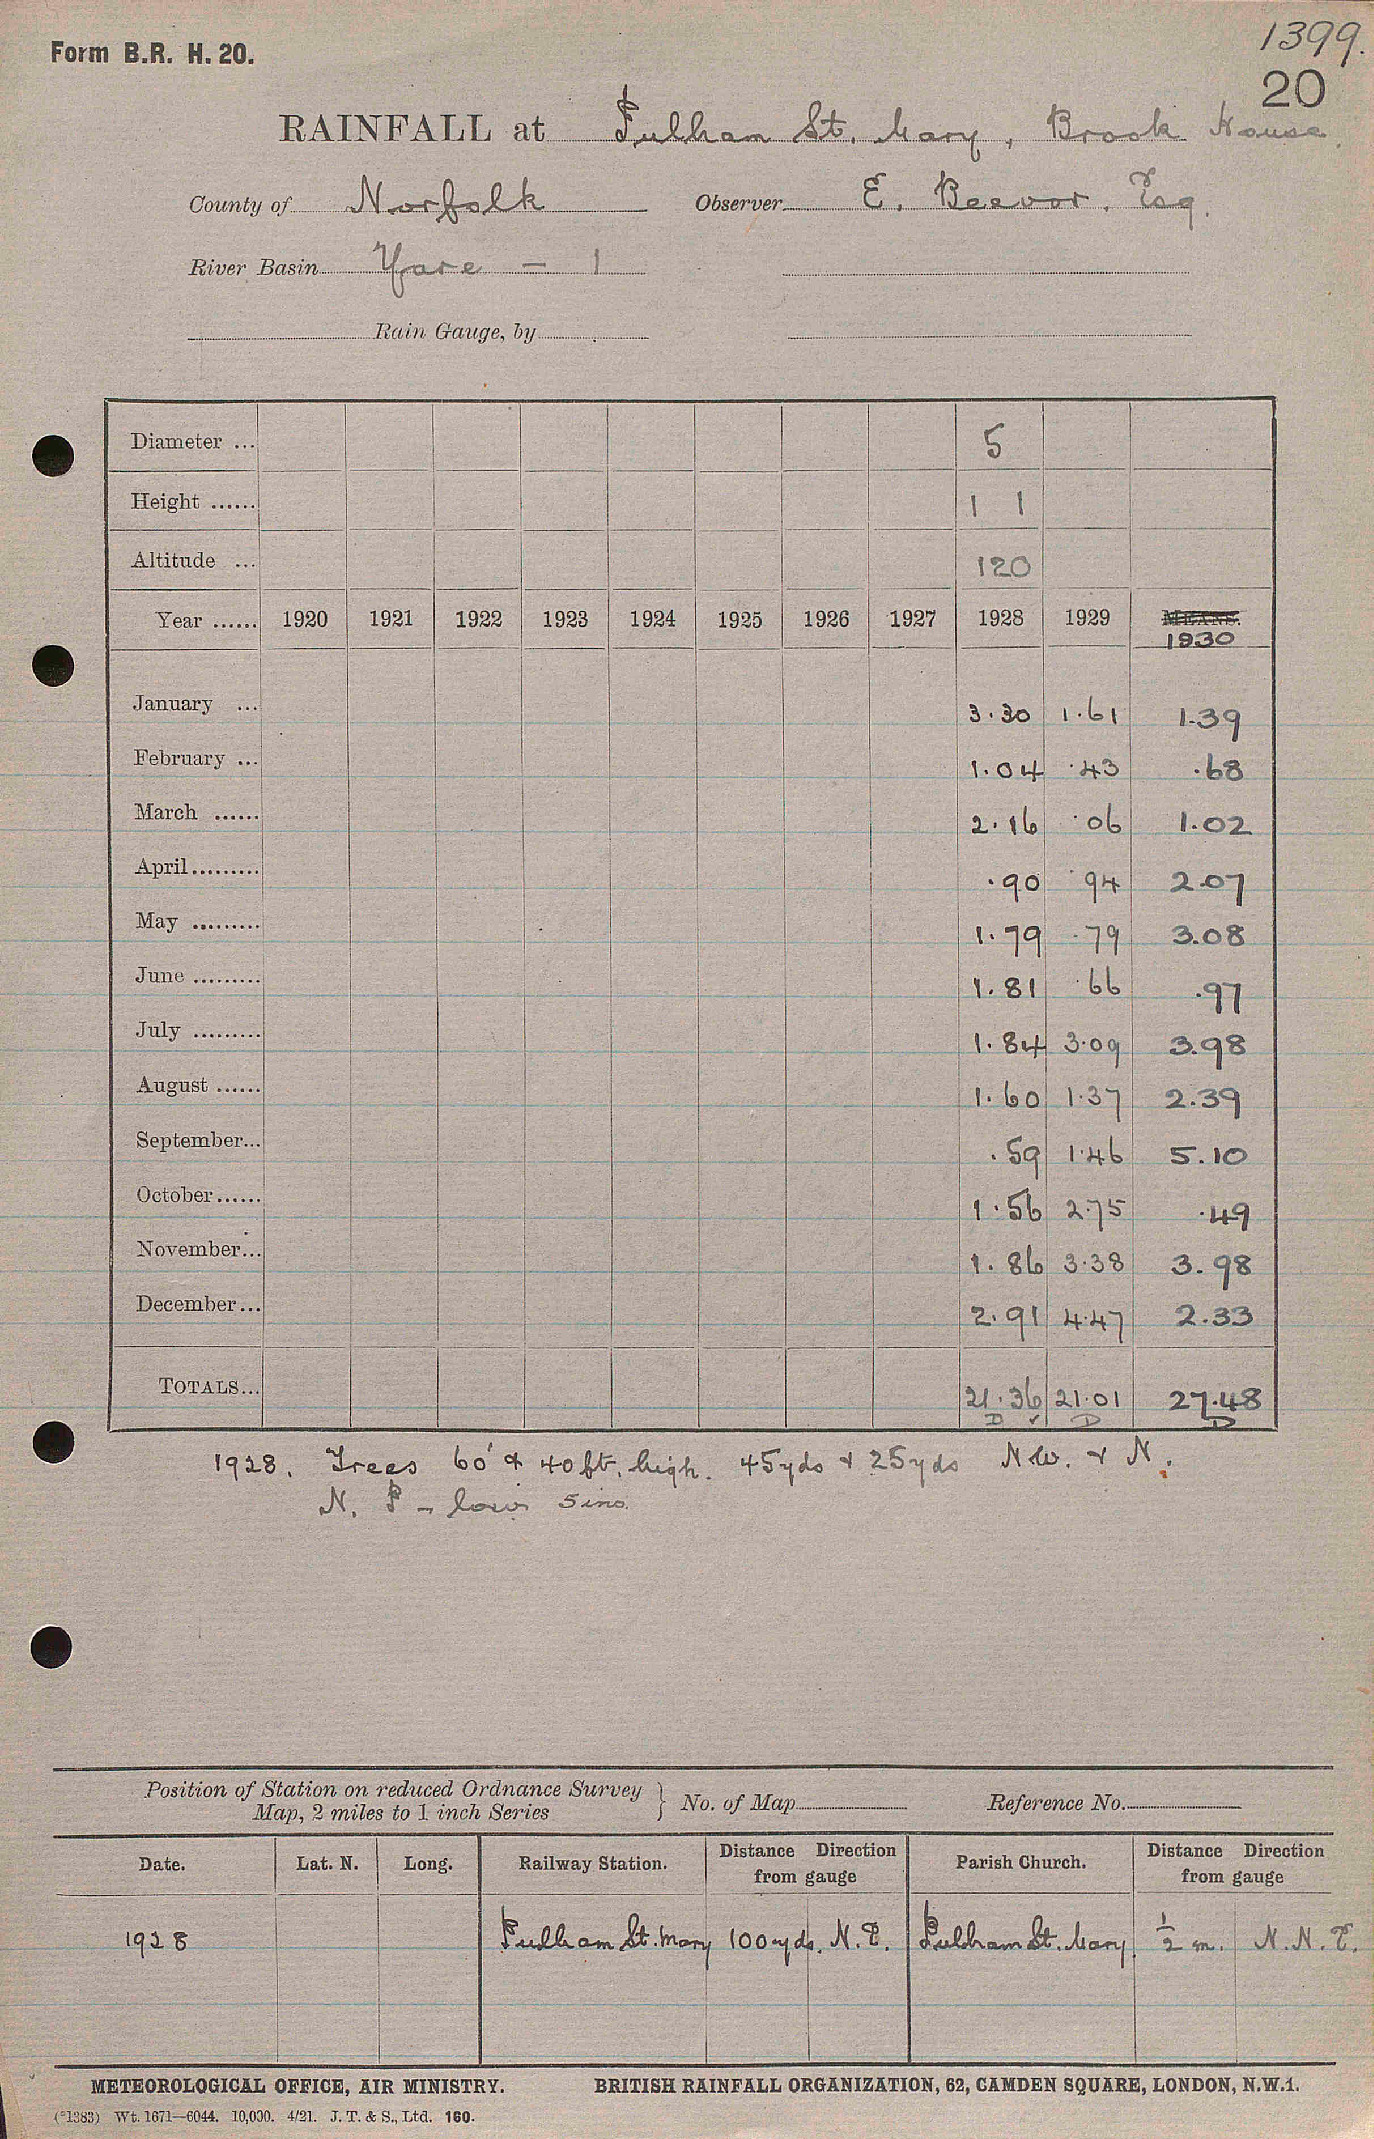 1399.
Form B.R. H. 20.
20
RAINFALL at Pulham St. Mary, Brook House.
County of Norfolk Observer E. Beevor. Esq.
River Basin Yare - 1
Rain Gauge, by
Diameter ... 5
Height ...... 1 1
Altitude ... 120
Year ...... 1920 1921 1922 1923 1924 1925 1926 1927 1928 1929 MEANS.
1930
January ... 3.30 1.61 1.39
February ... 1.04 .43 .68
March ...... 2.16 .06 1.02
April......... .90 .94 2.07
May ......... 1.79 .79 3.08
June ......... 1.81 .66 .97
July ......... 1.84 3.09 3.98
August ...... 1.60 1.37 2.39
September... .59 1.46 5.10
October...... 1.56 2.75 .49
November... 1.86 3.38 3.98
December... 2.91 4.47 2.33
TOTALS... 21.36 21.01 27.48
D ✓ D D
1928. Trees 60' & 40 ft. high. 45 yds & 25 yds NW. & N.
N. P - low 5 ins.
Position of Station on reduced Ordnance Survey
Map, 2 miles to 1 inch Series } No. of Map Reference No.
Date. Lat. N. Long. Railway Station. Distance Direction from gauge Parish Church. Distance Direction from gauge
1928 Pulham St. Mary 100 yds. N.E. Pulham St. Mary. 1/2 m. N.N.E.
METEOROLOGICAL OFFICE, AIR MINISTRY. BRITISH RAINFALL ORGANIZATION, 62, CAMDEN SQUARE, LONDON, N.W.1.
(*1383) Wt. 1671—6044. 10,000. 4/21. J. T. & S., Ltd. 160.